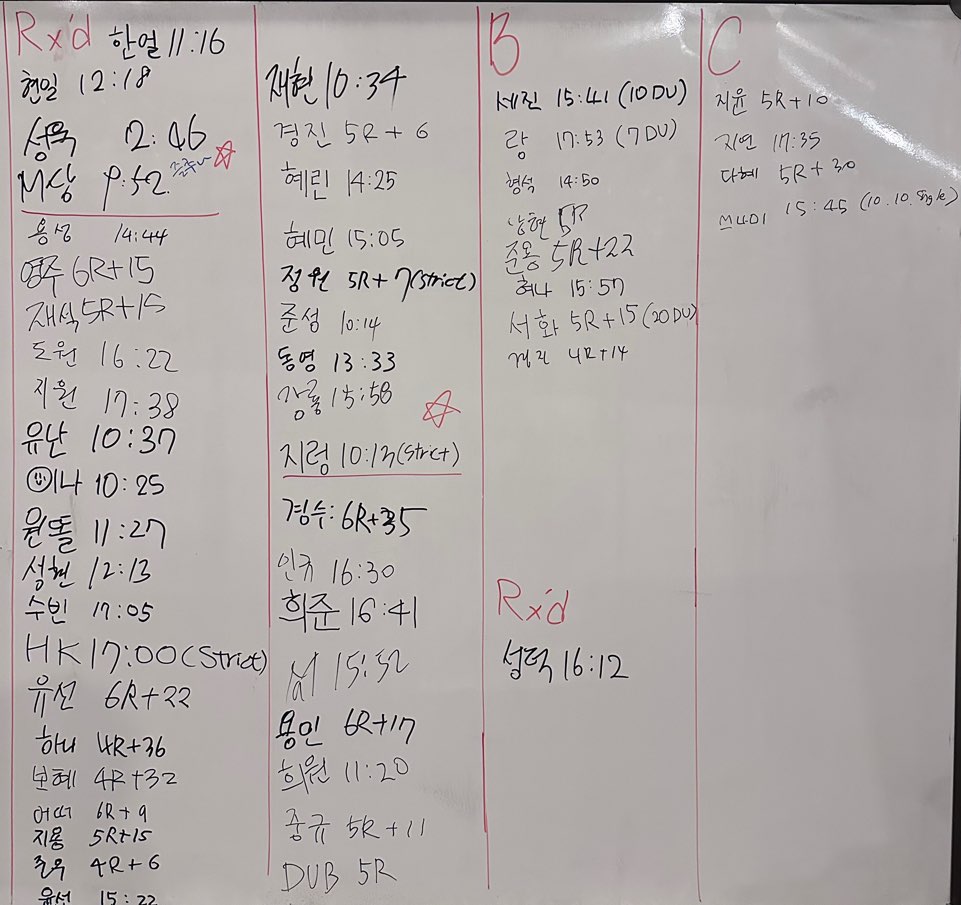 Rx'd 한열 11:16
현일 12:18
성욱 12:46
M상 9:52
용성 14:44
영주 6R+15
재식 5R+15
도원 16:22
지원 17:38
유난 10:37
이나 10:25
원똘 11:27
성현 12:13
수빈 17:05
HK 17:00 (Strict)
유선 6R+22
하니 4R+36
보혜 4R+32
6R+9
지용 5R+15
4R+6
윤선 15:22
재현 10:34
경진 5R+6
혜린 14:25
혜민 15:05
정원 5R+7 (Strict)
준성 10:14
동영 13:33
강룡 15:58
지령 10:13 (Strict)
경수: 6R+35
인규 16:30
희준 16:41
15:52
용인 6R+17
희원 11:20
중규 5R+11
DUB 5R
B
세진 15:41 (10DU)
랑 17:53 (7DU)
형석 14:50
남현 5R
준용 5R+22
혀나 15:57
서화 5R+15 (20DU)
경진 4R+14
Rx'd
성덕 16:12
C
지윤 5R+10
지연 17:35
다혜 5R+30
쓰나미 15:45 (10.10.single)